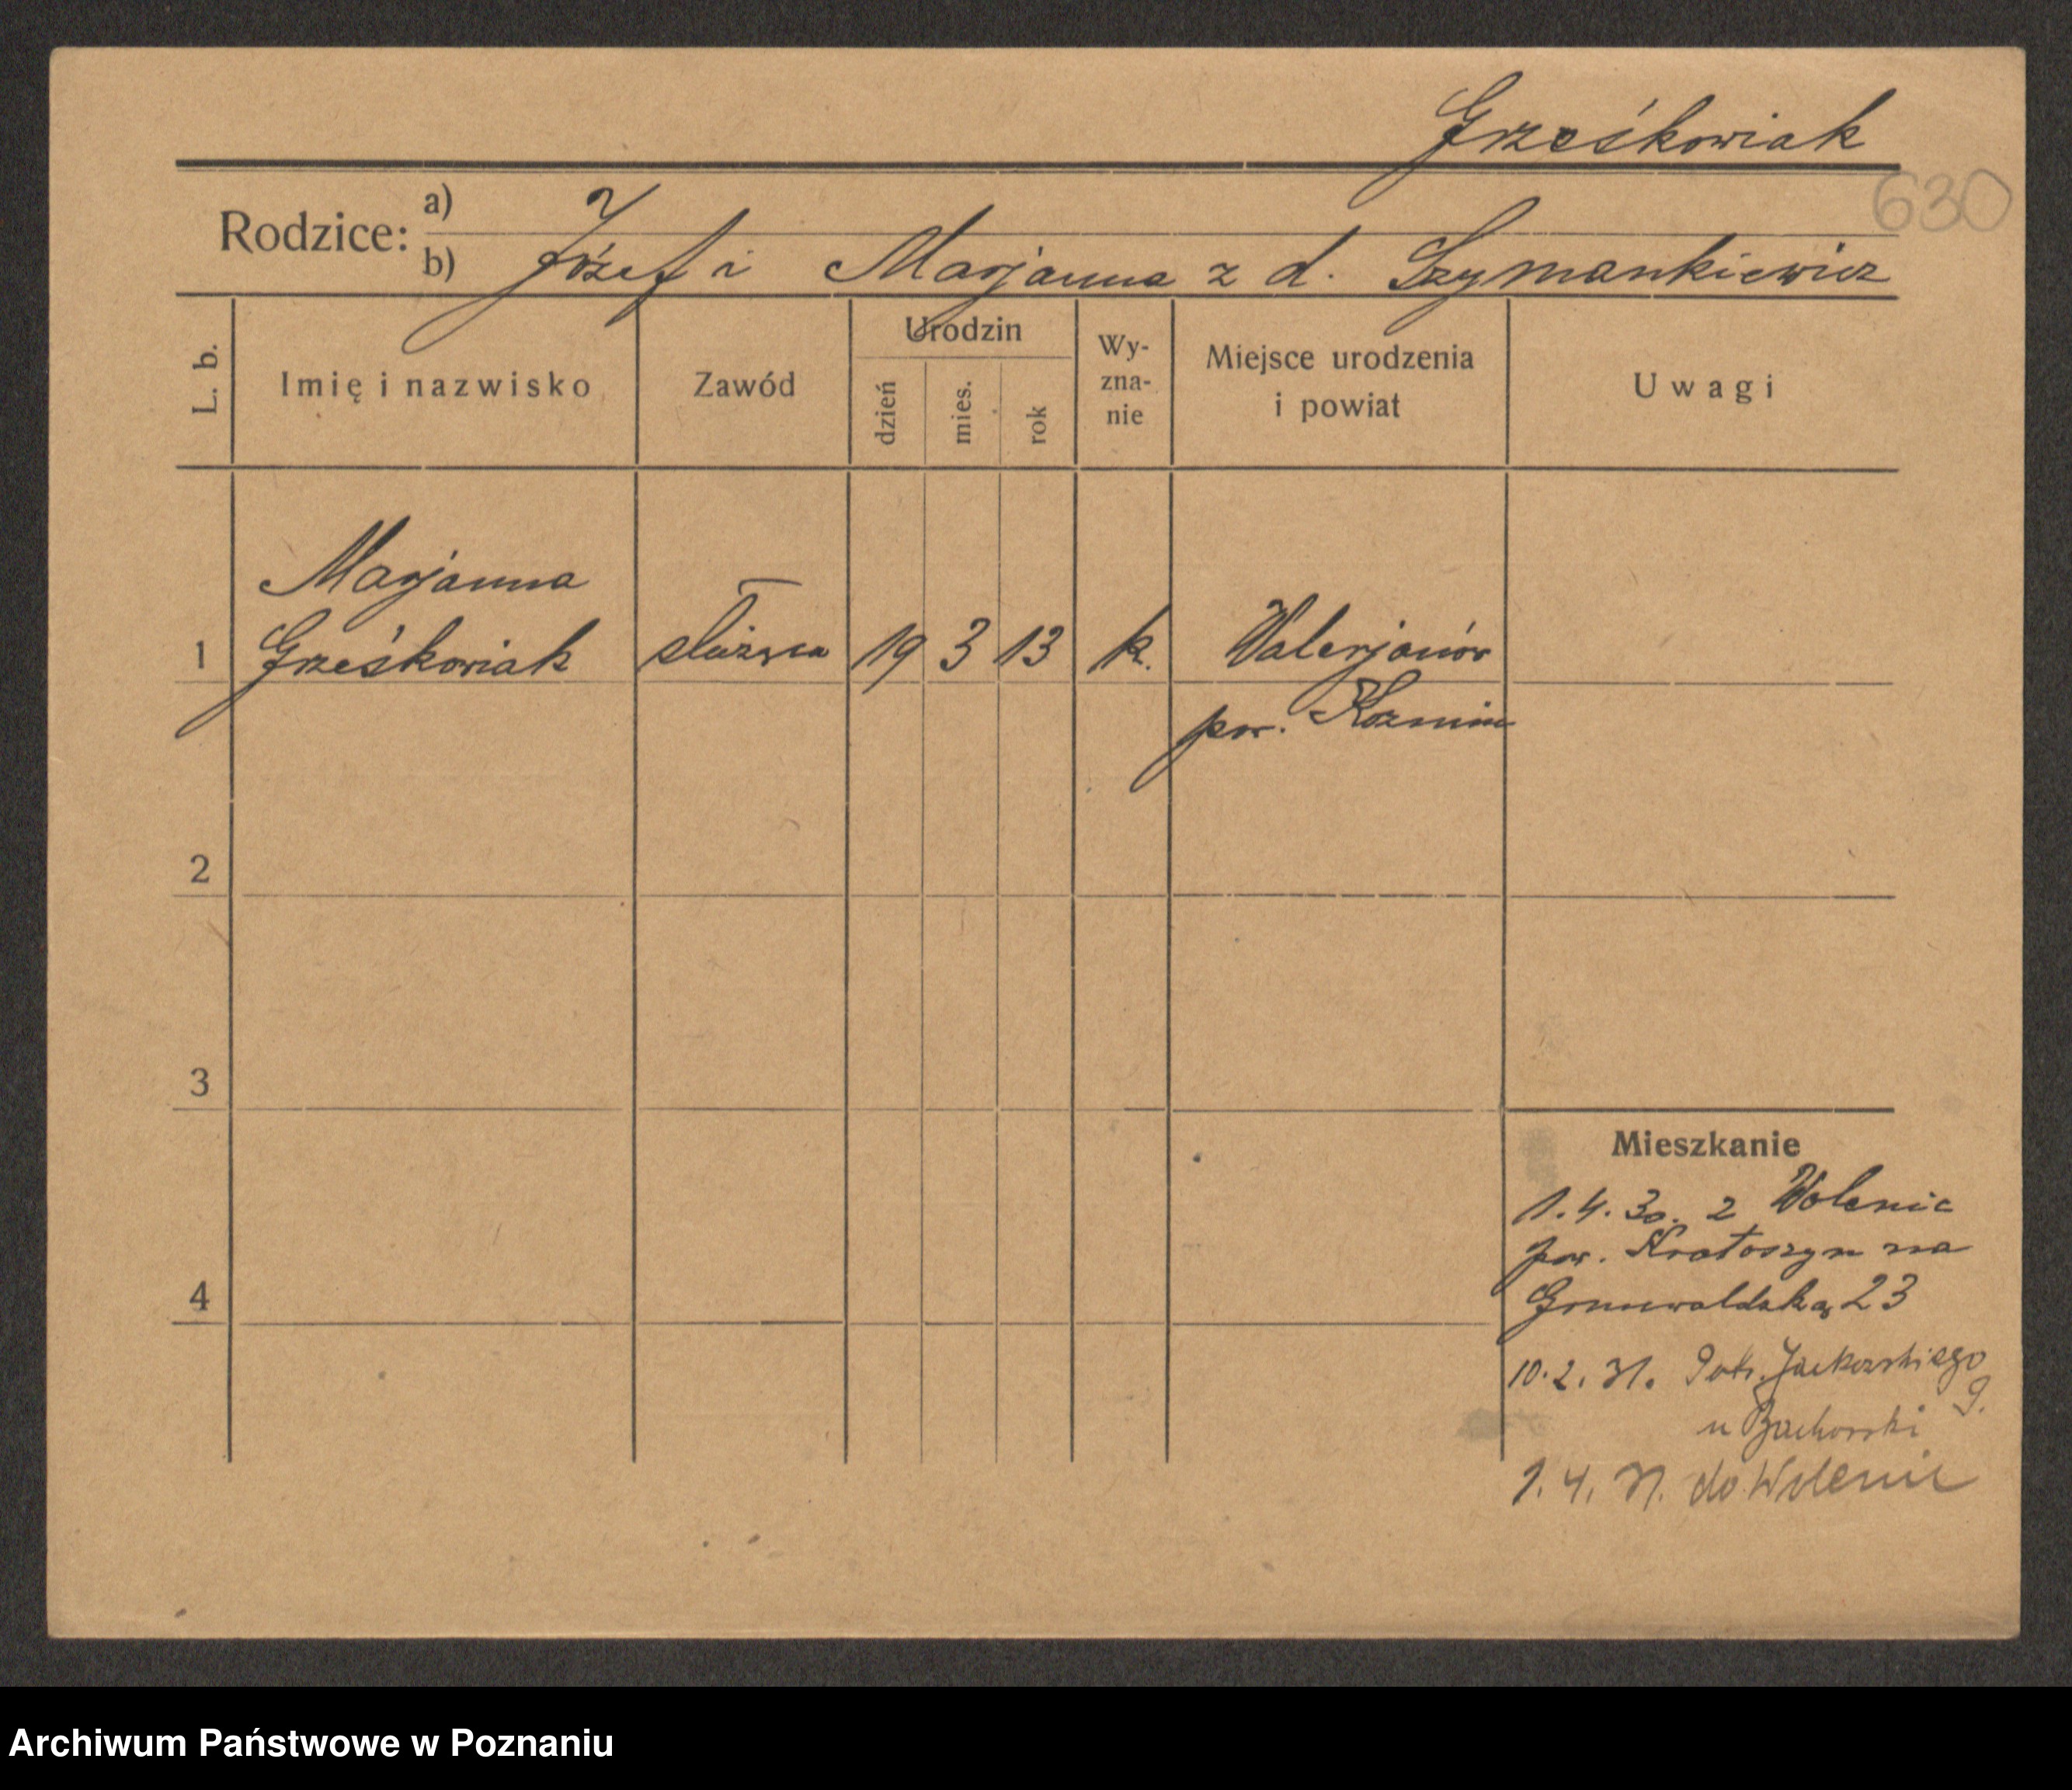 Grześkowiak
630
Rodzice: a)
b) Józef i Marjanna z d. Szymankiewicz
L. b.
Imię i nazwisko
Zawód
Urodzin
dzień
mies.
rok
Wy-
zna-
nie
Miejsce urodzenia
i powiat
Uwagi
Marjanna
1 Grześkowiak służąca 19 3 13 k. Walerjanów
pow. Kozmin
2
3
4
Mieszkanie
1.4.30. z Wolenic
pow. Krotoszyn na
Grunwaldzką 23
10.2.31. Patr. Jackowskiego
9.
u Bachorski
1.4.31. do Wolenic
Archiwum Państwowe w Poznaniu